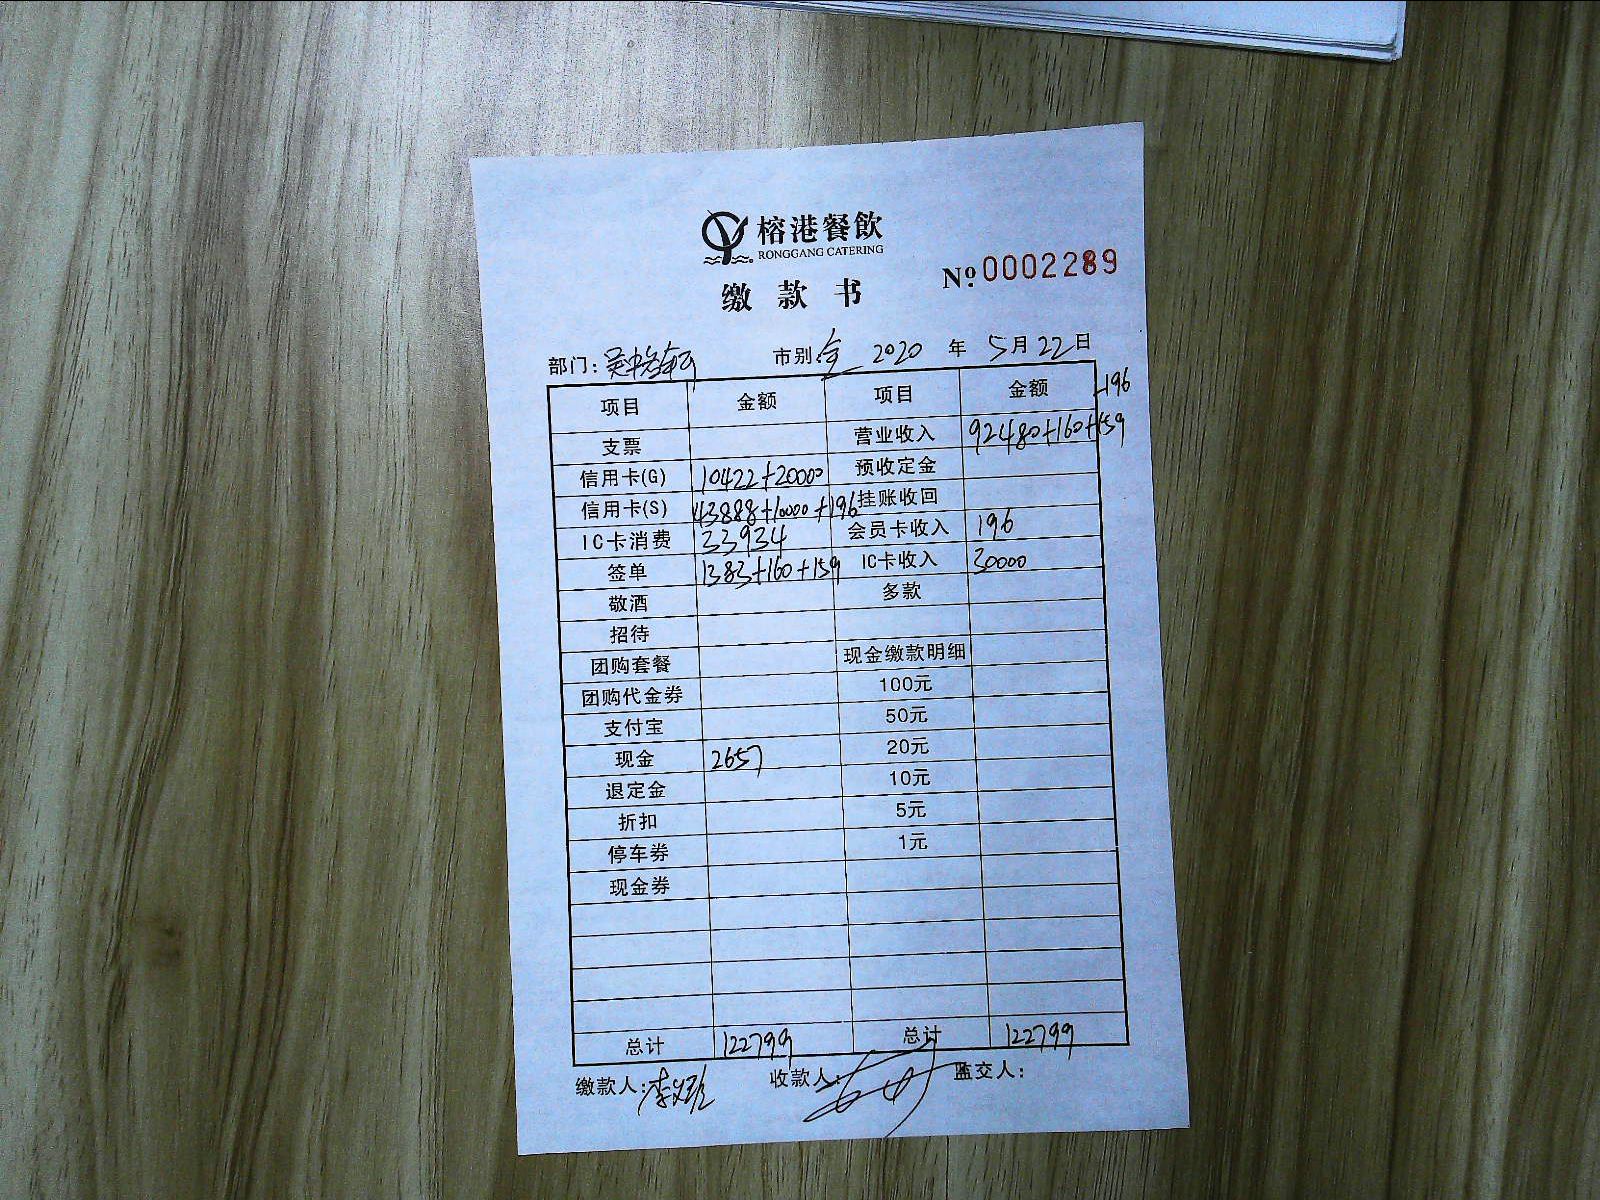 榕港餐飲
RONGGANG CATERING
缴款书
No.0002289
部门: 市别:全 2020 年 5月22日
项目 金额 项目 金额 -196
支票 营业收入 92480+160+159
信用卡(G) 10422+20000 预收定金
信用卡(S) 43888+10000+196 挂账收回
IC卡消费 33934 会员卡收入 196
签单 1383+160+159 IC卡收入 30000
敬酒 多款
招待
团购套餐 现金缴款明细
团购代金券 100元
支付宝 50元
现金 2657 20元
退定金 10元
折扣 5元
停车券 1元
现金券
总计 122799 总计 122799
缴款人: 收款人: 监交人: